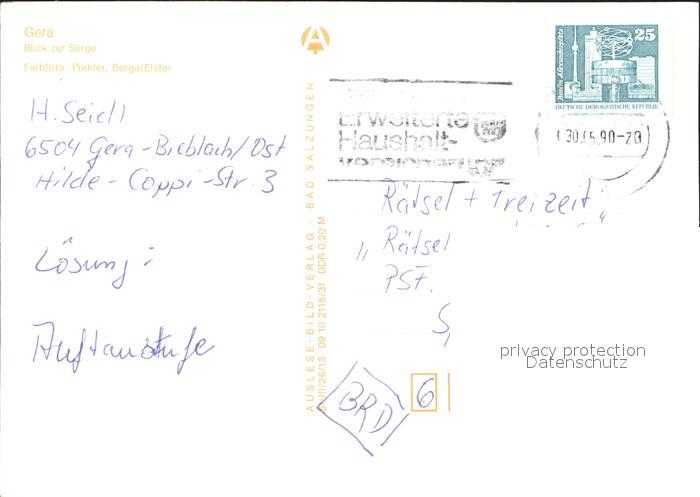 Gera
Blick zur Sorge
Farbfoto: Piehler, Berga/Elster
H. Seidl
6504 Gera-Bieblach/Ost
Hilde-Coppi-Str. 3
Lösung:
Auftaustufe
AUSLESE-BILD-VERLAG · BAD SALZUNGEN
09 10 2115/31 DDR 0,20 M
Erweiterte
Haushalt-
25
Berlin, Alexanderplatz
DEUTSCHE DEMOKRATISCHE REPUBLIK
30.05.90-20
Rätsel + Freizeit
„Rätsel
PSF.
BRD
6
privacy protection
Datenschutz